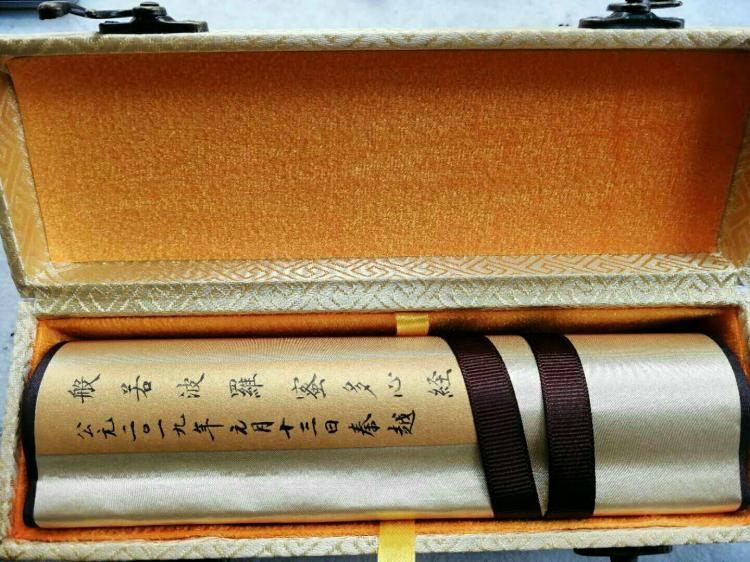 般若波羅蜜多心経
公元二〇一九年元月十三日秦越